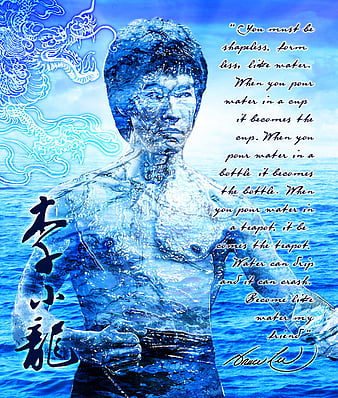 "You must be
shapeless, form
less, like water.
When you pour
water in a cup
it becomes the
cup. When you
pour water in a
bottle it becomes
the bottle. When
you pour water in
a teapot, it be
comes the teapot.
Water can drip
and it can crash.
Become like
water my
friend"
Bruce Lee
李小龍